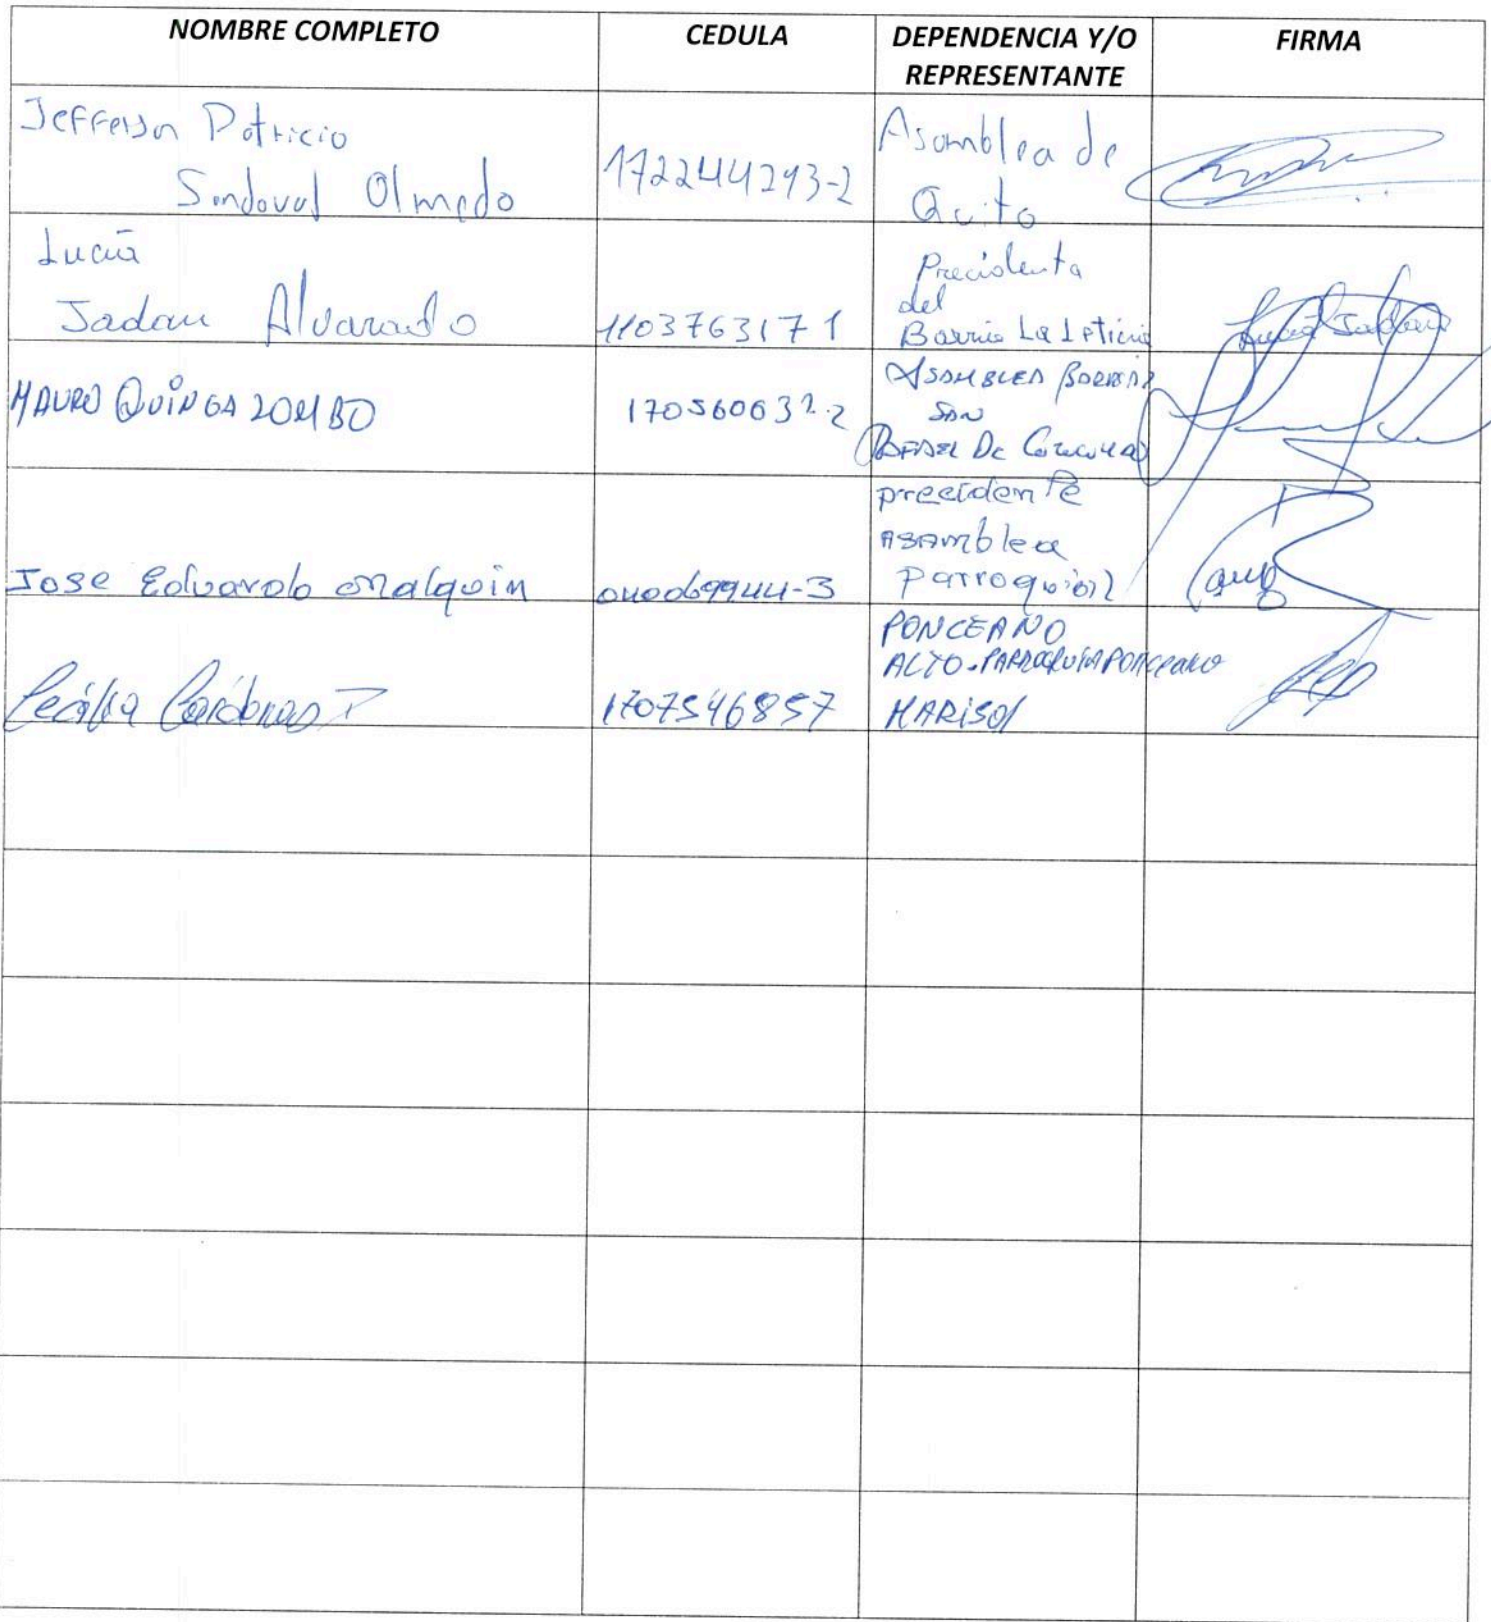 NOMBRE COMPLETO
CEDULA
DEPENDENCIA Y/O
REPRESENTANTE
FIRMA
Jefferson Patricio
Sandoval Olmedo
172244293-2
Asamblea de
Quito
Lucía
Jadan Alvarado
1103763171
Precidenta
del
Barrio La Leticia
Lucía Jadan
MAURO QUINGA ZOMBO
170560632-2
ASAMBLEA BARRIAL
SAN
De
Jose Eduardo Malquin
040069944-3
precidente
Asamblea
Parroquial
Cecilia Cárdenas
1707546857
PONCEANO
ALTO-PARROQUIA PONCEANO
MARISOl